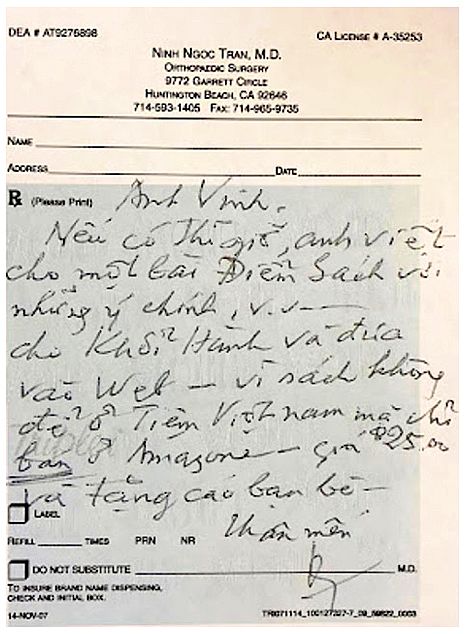 DEA # AT9276898 CA LICENSE # A-35253
NINH NGOC TRAN, M.D.
ORTHOPAEDIC SURGERY
9772 GARRETT CIRCLE
HUNTINGTON BEACH, CA 92646
714-593-1405 FAX: 714-965-9735
NAME
ADDRESS DATE
℞ (Please Print) Anh Vinh.
Nếu có thì giờ, anh viết
cho một bài Điểm Sách với
những ý chính, v.v—
cho Khởi Hành và đưa
vào Web – vì sách không
để ở Tiệm Việt nam mà chỉ
bán ở Amazone – giá $25.00
và tặng các bạn bè –
LABEL
Thân mến
REFILL TIMES PRN NR
DO NOT SUBSTITUTE M.D.
TO INSURE BRAND NAME DISPENSING,
CHECK AND INITIAL BOX.
14-NOV-07